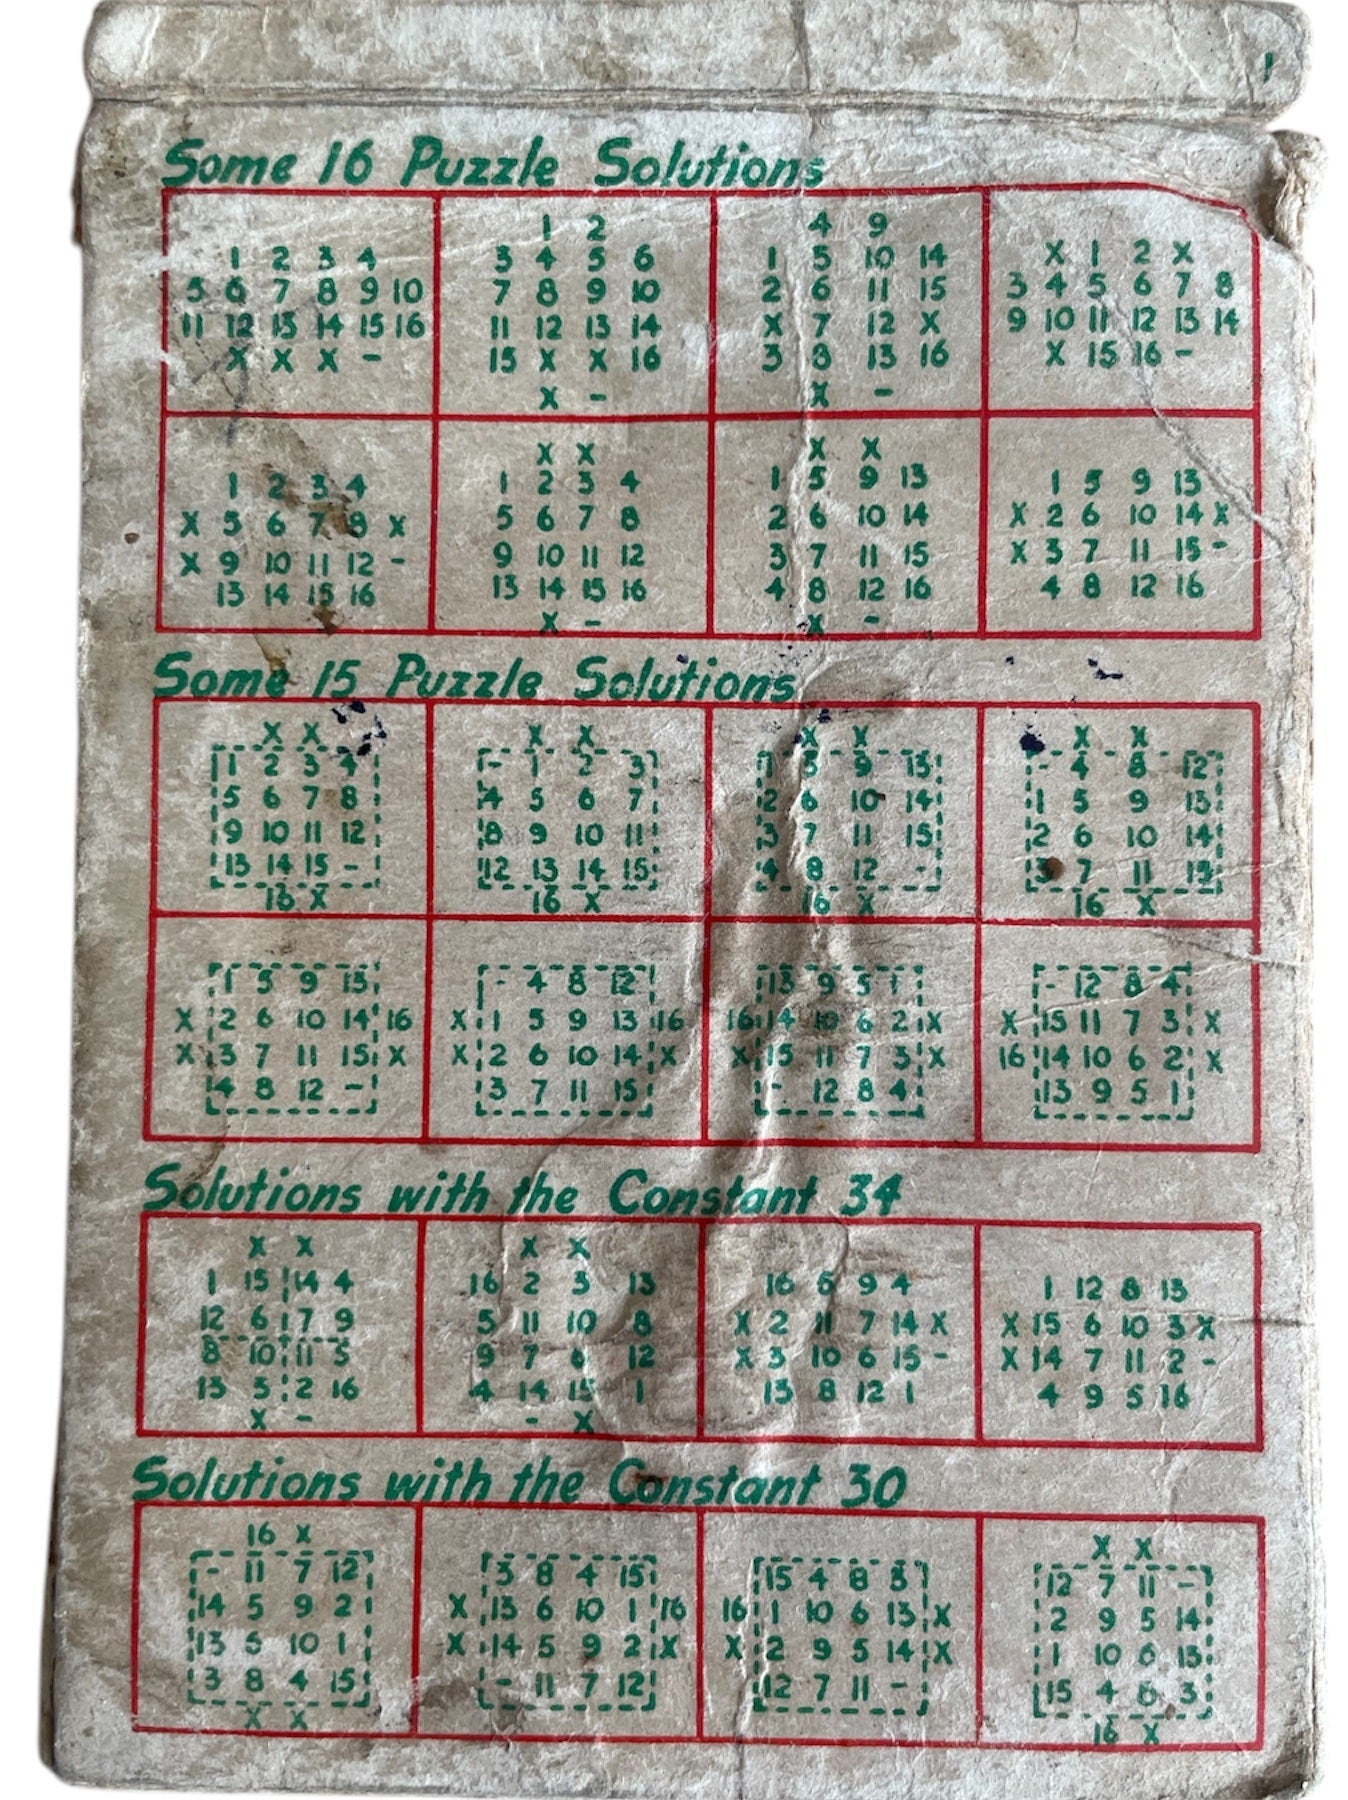 Some 16 Puzzle Solutions
1 2 3 4
5 6 7 8 9 10
11 12 13 14 15 16
X X X -
1 2
3 4 5 6
7 8 9 10
11 12 13 14
15 X X 16
X -
4 9
1 5 10 14
2 6 11 15
X 7 12 X
3 8 13 16
X -
X 1 2 X
3 4 5 6 7 8
9 10 11 12 13 14
X 15 16 -
1 2 3 4
X 5 6 7 8 X
X 9 10 11 12 -
13 14 15 16
X X
1 2 3 4
5 6 7 8
9 10 11 12
13 14 15 16
X -
X X
1 5 9 13
2 6 10 14
3 7 11 15
4 8 12 16
X -
1 5 9 13
X 2 6 10 14 X
X 3 7 11 15 -
4 8 12 16
Some 15 Puzzle Solutions
X X
1 2 3 4
5 6 7 8
9 10 11 12
13 14 15 -
16 X
X X
- 1 2 3
4 5 6 7
8 9 10 11
12 13 14 15
16 X
X X
1 5 9 13
2 6 10 14
3 7 11 15
4 8 12 -
16 X
X X
- 4 8 12
1 5 9 13
2 6 10 14
3 7 11 15
16 X
1 5 9 13
X 2 6 10 14 16
X 3 7 11 15 X
4 8 12 -
- 4 8 12
X 1 5 9 13 16
X 2 6 10 14 X
3 7 11 15
13 9 5 1
16 14 10 6 2 X
X 15 11 7 3 X
- 12 8 4
- 12 8 4
X 15 11 7 3 X
16 14 10 6 2 X
13 9 5 1
Solutions with the Constant 34
X X
1 15 14 4
12 6 7 9
8 10 11 5
13 3 2 16
X -
X X
16 2 3 13
5 11 10 8
9 7 6 12
4 14 15 1
- X
16 5 9 4
X 2 11 7 14 X
X 3 10 6 15 -
13 8 12 1
1 12 8 13
X 15 6 10 3 X
X 14 7 11 2 -
4 9 5 16
Solutions with the Constant 30
16 X
- 11 7 12
14 5 9 2
13 6 10 1
3 8 4 15
X X
3 8 4 15
X 13 6 10 1 16
X 14 5 9 2 X
- 11 7 12
15 4 8 3
16 1 10 6 13 X
X 2 9 5 14 X
12 7 11 -
X X
12 7 11 -
2 9 5 14
1 10 6 13
15 4 8 3
16 X